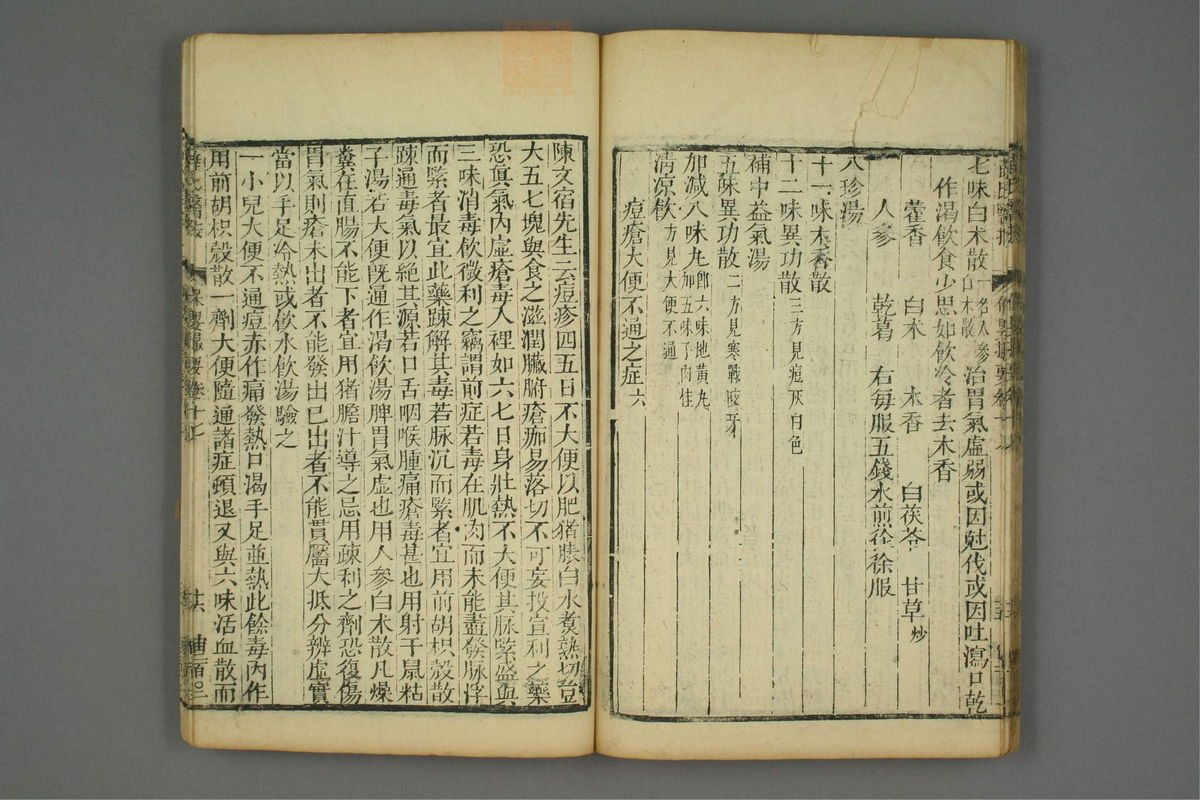 七味白朮散一名人參白朮散治胃氣虛弱或因尅伐或因吐瀉口乾
作渴飲食少思如飲冷者去木香
藿香 白朮 木香 白茯苓 甘草炒
人參 乾葛 右每服五錢水煎徐徐服
八珍湯
十一味木香散
十二味異功散三方見痘灰白色
補中益氣湯
五味異功散二方見寒戰咬牙
加減八味丸即六味地黃丸加五味子肉桂
清凉飲方見大便不通
痘瘡大便不通之症六
陳文宿先生云痘疹四五日不大便以肥猪膘白水煮熟切荳
大五七塊與食之滋潤臟腑瘡痂易落切不可妄投宣利之藥
恐真氣內虛瘡毒入裡如六七日身壯熱不大便其脉緊盛與
三味消毒飲微利之竊謂前症若毒在肌肉而未能盡發脉浮
而緊者最宜此藥踈解其毒若脉沉而緊者宜用前胡枳殼散
踈通毒氣以絕其源若口舌咽喉腫痛瘡毒甚也用射干鼠粘
子湯若大便旣通作渴飲湯脾胃氣虛也用人參白朮散凡燥
糞在直腸不能下者宜用猪膽汁導之忌用踈利之劑恐復傷
胃氣則瘡未出者不能發出已出者不能貫膿大抵分辨虛實
當以手足冷熱或飲水飲湯驗之
一小兒大便不通痘赤作痛發熱口渴手足並熱此餘毒內作
用前胡枳殼散一劑大便隨通諸症頓退又與六味活血散而
薛氏醫按 保嬰撮要卷十七